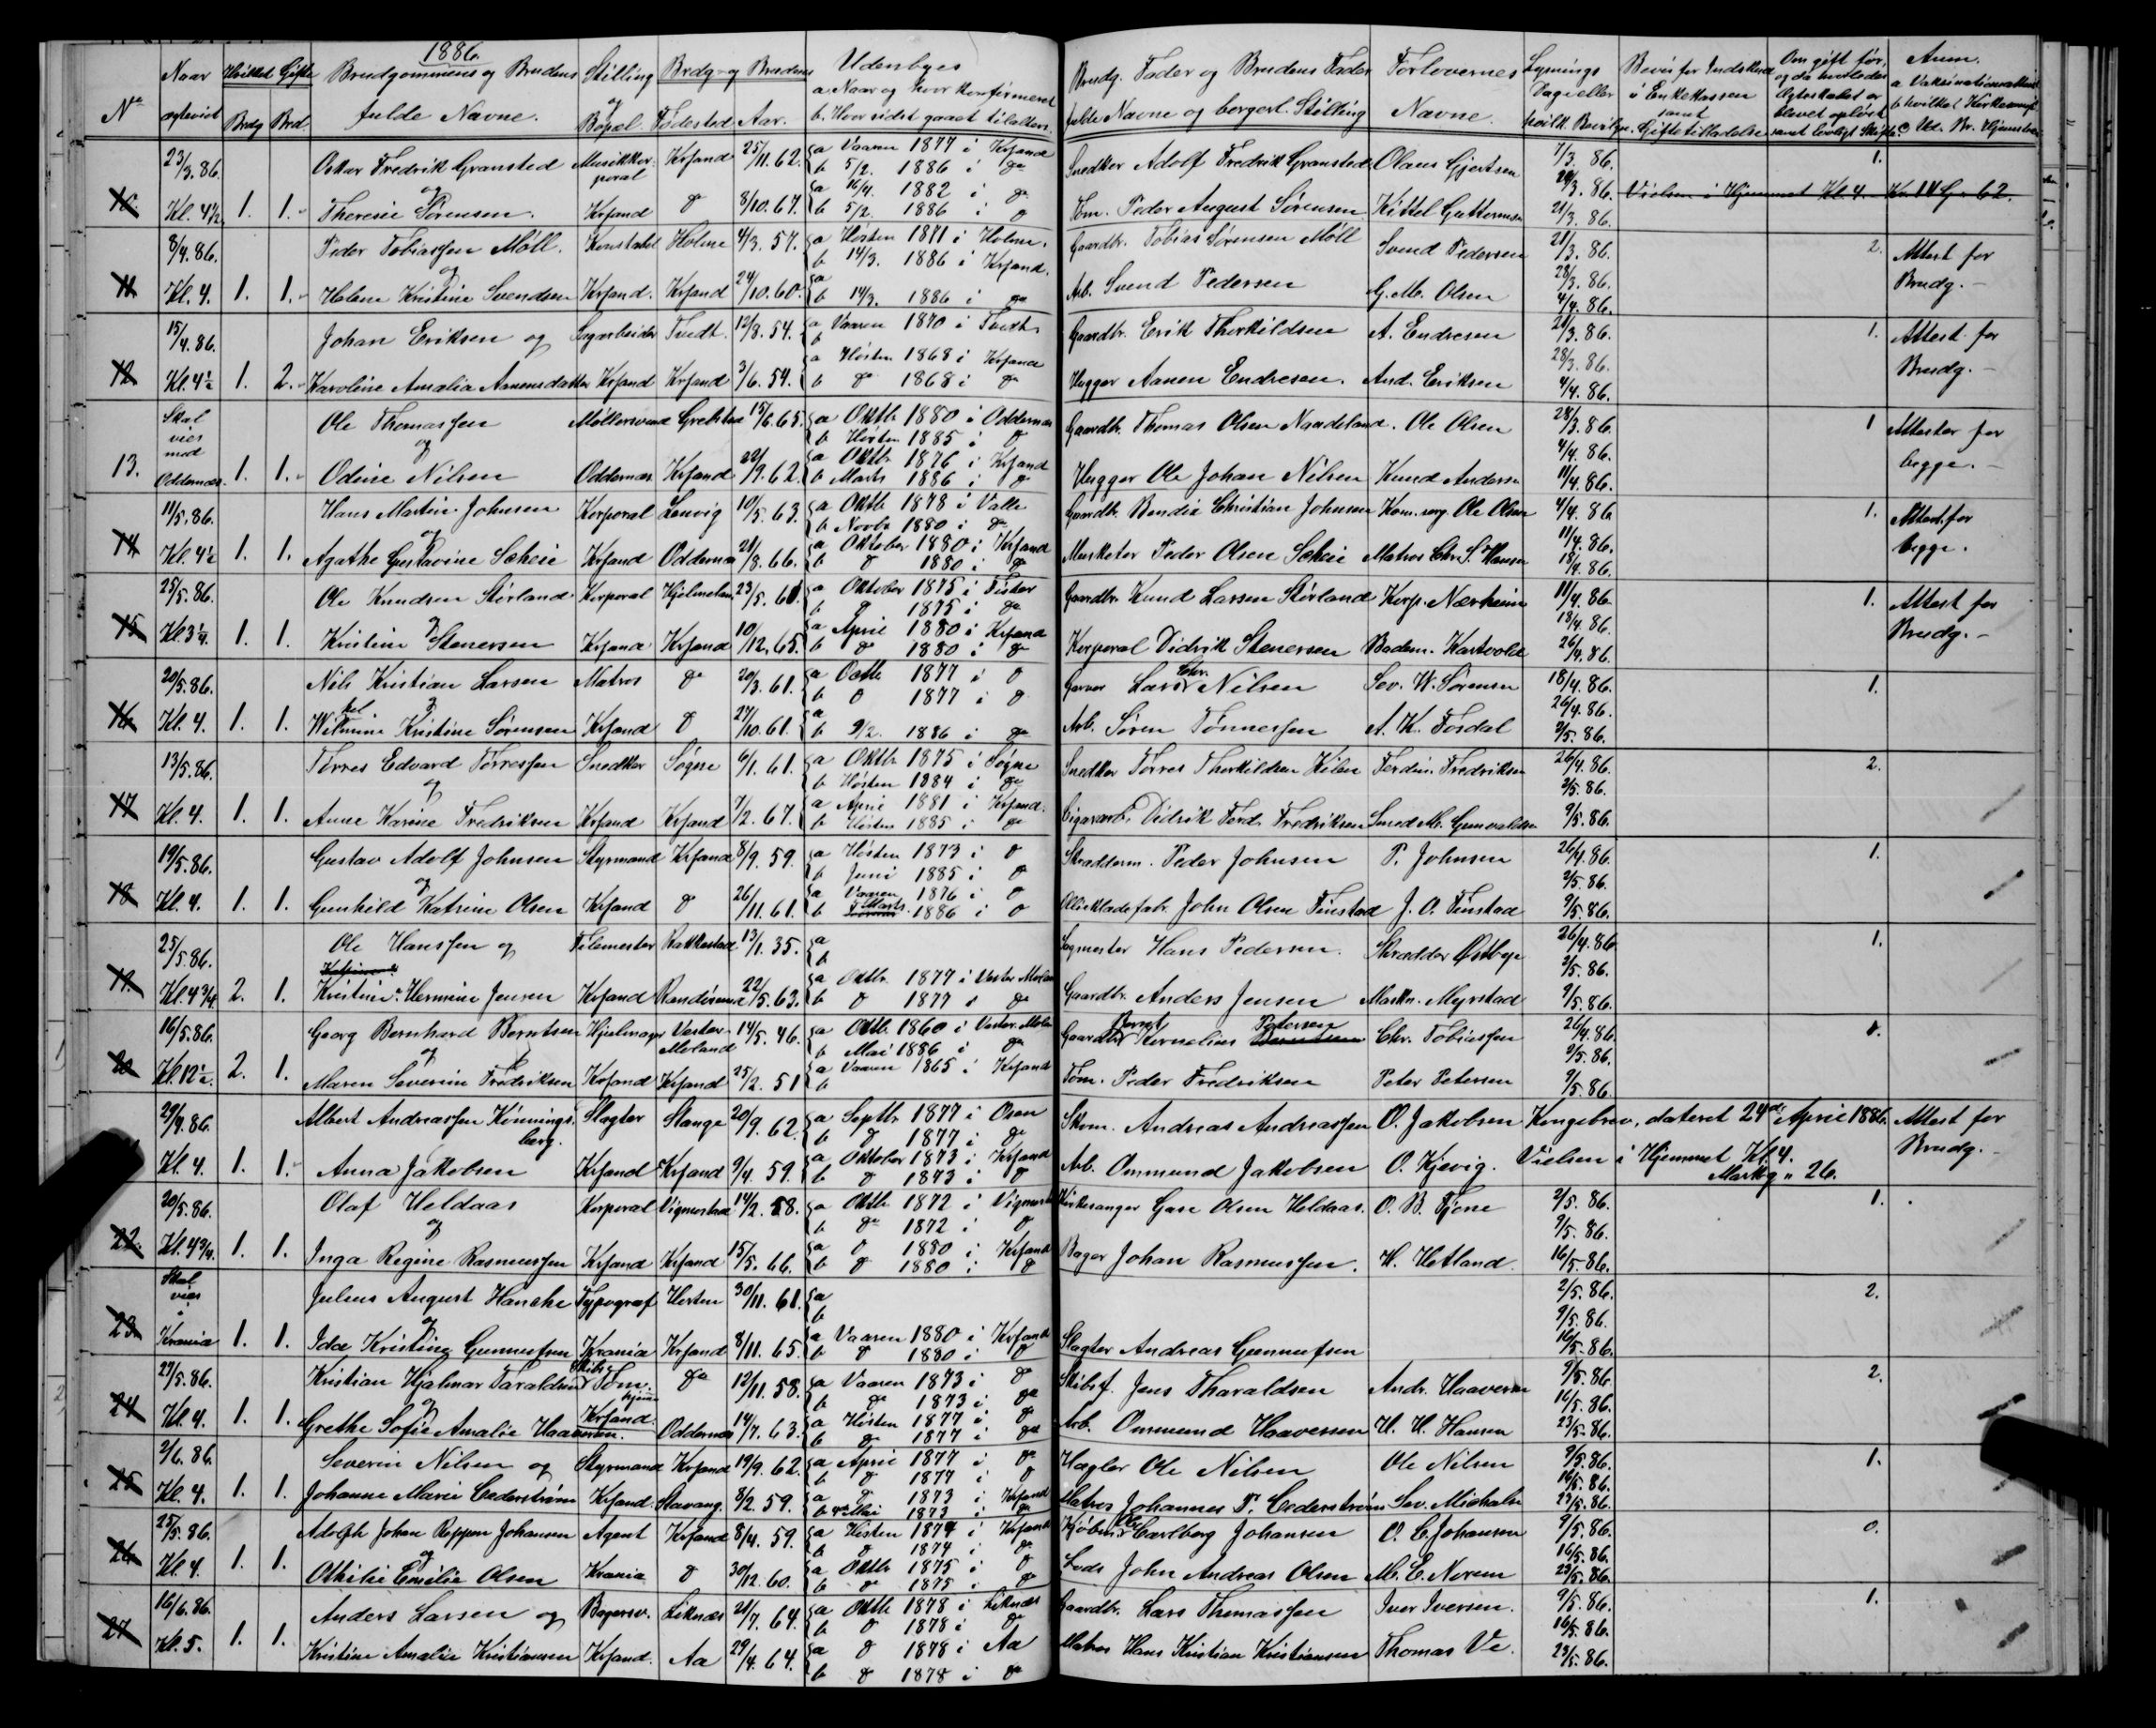 1886
No Naar agtevict Hvilket Gifte Brdg. Brd. Brudgommens og Brudens fulde Navne. Stilling og Bopæl. Brdg. og Brudens Fødested Aar. Udenbyes a. Naar og hvor konfirmeret b. Hvor sidst gaaet tilalters.
Brudg. Fader og Brudens Fader fulde Navne og borgerl. Stilling Forlovernes Navne Lysnings Dage eller hvilk. Bevilgn. Bevis for Indskud i Enkekassen samt Giftetilladelse Om gift før, og da hvorledes Ægteskabet er blevet opløst samt lovligt Skifte Anm.
23/3.86. Oskar Fredrik Gransted Musikkorporal Krsand 25/11.62. a Vaaren 1877 i Krsand b 5/2. 1886 i do Snedker Adolf Fredrik Gransted Olaus Gjertsen 7/3.86. 1.
10. Kl. 4½ 1. 1. og Theresie Sørensen. Krsand do 8/10.67. a 16/4. 1882 i do b 5/2. 1886 i do Tøm. Peder August Sørensen Kittel Guttormsen 21/3.86. Vielsen i Hjemmet Kl. 4
8/4.86. Peder Tobiassen Møll. Konstabel Holme 4/3.57. a Høsten 1871 i Holme. b 14/3. 1886 i Krsand. Gaardbr. Tobias Sørensen Møll Svend Pedersen 21/3.86. 2. Attest for Brudg. –
11 Kl. 4. 1. 1. og Helene Kristine Svendsen Krsand. Krsand 24/10.60. a b 14/3. 1886 i do Arb. Svend Pedersen G. M. Olsen 28/3.86. 4/4.86.
15/4.86. Johan Eriksen og Sagarbeider Tvedt. 12/8.54. a Vaaren 1870 i Tvedt b Gaardbr. Erik Therkildsen A. Endresen 21/3.86. 1. Attest for Brudg. –
12 Kl. 4½ 1. 2. Karoline Amalia Aanensdatter Krsand Krsand 3/6.54. a Høsten 1868 i Krsand b do 1868 i do Hugger Aanen Endresen. And. Eriksen 28/3.86. 4/4.86.
Skal vies mod Oddernæs. Ole Thomassen Møllersvend 15/6.65. a Oktb 1880 i Oddernæs b Høsten 1885 i do Gaardbr. Thomas Olsen Naadeland. Ole Olsen 28/3.86. 1 Attester for begge. –
13. 1. 1. og Odine Nilsen Oddernæs Krsand 22/9.62. a Oktbr 1876 i Krsand b Marts 1886 i do Hugger Ole Johan Nilsen Knud Andersen 4/4.86. 11/4.86.
11/5.86. Hans Martin Johnsen Korporal Lenvig 10/5.63. a Oktb 1878 i Valle b Novbr 1880 i do Gaardb. Bendix Christian Johnsen Ole Olsen 4/4.86 1. Attest for begge.
14 Kl. 4½ 1. 1. og Agathe Gustavine Sæheie Krsand Oddernæs 21/8.66. a Oktober 1880 i Krsand b do 1880 i do Musketer Peder Olsen Sæheie Matros Chr. S. Hansen 11/4.86. 18/4.86.
25/5.86. Ole Knudsen Størland Korporal Hjelmeland 23/5.61. a Oktober 1875 i Fister b do 1875 i do Gaardbr. Knud Larsen Størland Korp. Nærheim 11/4.86 1. Attest for Brudg. –
15 Kl. 3¼. 1. 1. og Kristine Stenersen Krsand Krsand 10/12.65. a April 1880 i Krsand b do 1880 i do Korporal Didrik Stenersen Badem. Hartvold 18/4.86. 26/4.86.
20/5.86. Nils Kristian Larsen Matros do 20/3.61. a Octb 1877 i do b do 1877 i do Lars Chr. Nilsen Sev. W. Sørensen 18/4.86. 1.
16 Kl. 4. 1. 1. og Wilhelmine Kristine Sørensen Krsand do 27/10.61. a b 9/2. 1886 i do Arb. Søren Tønnessen A. K. Fosdal 26/4.86. 2/5.86.
13/5.86. Tørres Edvard Tørressen Snedker Søgne 6/1.61. a Oktb 1875 i Søgne b Høsten 1884 i do Snedker Tørres Therkildsen Kilen Ferdin. Fredriksen 26/4.86. 2.
17 Kl. 4. 1. 1. og Anne Karine Fredriksen Krsand Krsand 7/2.67. a April 1881 i Krsand. b Høsten 1885 i do Cigararb. Didrik Ferd. Fredriksen Smed M. Gunvaldsen 2/5.86. 9/5.86.
19/5.86. Gustav Adolf Johnsen Styrmand Krsand 8/9.59. a Høsten 1873 i do b Juni 1885 i do Skrædderm. Peder Johnsen P. Johnsen 26/4.86. 1.
18 Kl. 4. 1. 1. og Gunhild Katrine Olsen Krsand do 26/11.61. a Vaaren 1876 i do b Marts 1886 i do Olieklædefabr. John Olsen Finstad J. O. Finstad 2/5.86. 9/5.86.
25/5.86. Ole Hanssen og Filemester Rakkestad 13/1.35. a b Sagmester Hans Pedersen. Skrædder Østbye 26/4.86 1.
19. Kl. 4¾ 2. 1. Kristine Hermine Jensen Krsand Randøsund 22/5.63. a Oktbr. 1877 i Vester Moland b do 1877 i do Gaardbr. Anders Jensen Maskn. Myrstad 2/5.86. 9/5.86.
16/5.86. Georg Bernhard Berntsen Hjulmager Vester Moland 14/5.46. a Oktb. 1860 i Vester Moland b Mai 1886 i do Gaardbr Bernt Kornelius Petersen Chr. Tobiassen 26/4.86 1.
20 Kl. 12½. 2. 1. og Maren Severine Fredriksen Krsand Krsand 25/2.51 a Vaaren 1865 i Krsand b Tøm. Peder Fredriksen Peter Petersen 2/5.86. 9/5.86.
29/4.86. Albert Andreassen Kønningsberg. Slagter Stange 20/9.62. a Septbr 1877 i Osen b do 1877 i do Skom. Andreas Andreassen O. Jakobsen Kongebrev, dateret 24de April 1886. Attest for Brudg. –
Kl. 4. 1. 1. Anna Jakobsen Krsand Krsand 9/4.59. a Oktober 1873 i Krsand b do 1873 i do Arb. Ommund Jakobsen O. Kjevig. Vielsen i Hjemmet Kl. 4. Markg " 26.
20/5.86. Olaf Heldaas Korporal Vigmostad 14/2.58. a Oktb 1872 i Vigmostad b do 1872 i do Kirkesanger Gase Olsen Heldaas. O. B. Tjone 2/5.86. 1.
22. Kl. 4¾. 1. 1. og Inga Regine Rasmussen Krsand Krsand 15/5.66. a do 1880 i Krsand b do 1880 i do Bager Johan Rasmussen. H. Hetland 9/5.86. 16/5.86.
Skal vies i Krania Julius August Hanche Typograf Horten 30/11.61. a b 2/5.86. 2.
23. 1. 1. og Ida Kristine Gunnufsen Krania Krsand 8/11.65. a Vaaren 1880 i Krsand b do 1880 i do Slagter Andreas Gunnufsen 9/5.86. 16/5.86.
27/5.86. Kristian Hjalmar Taraldsen Skibs Tøm. do 12/11.58. a Vaaren 1873 i do b do 1873 i do Skibsf. Jens Tharaldsen Andr. Haaversen 9/5.86 2.
24 Kl. 4. 1. 1. og Grethe Sofie Amalie Haaversen. Krsand. Oddernæs 14/7.63. a Høsten 1877 i do b do 1877 i do Arb. Ommund Haaversen H. H. Hansen 16/5.86. 23/5.86.
2/6.86. Severin Nilsen og Styrmand Krsand 19/9.62. a April 1877 i do b do 1877 i do Hægler Ole Nilsen Ole Nilsen 9/5.86. 1.
25 Kl. 4. 1. 1. Johanne Marie Cederstrøm Krsand. Stavang. 8/2.59. a do 1873 i Krsand b 4de Mai 1873 i do Matros Johannes P. Cederstrøm Sev. Michalsen 16/5.86. 23/5.86.
25/5.86. Adolph Johan Reppen Johansen Agent Krsand 8/4.59. a Høsten 1874 i Krsand b do 1874 i do Kjøbm. Carlberg Johansen O. C. Johansen 9/5.86. 0.
26. Kl. 4. 1. 1. og Othilie Emilie Olsen Krania do 30/12.60. a Oktb 1875 i do b do 1875 i do Lods John Andreas Olsen M. E. Noren 16/5.86. 23/5.86.
16/6.86. Anders Larsen og Bagersv. Liknæs 21/7.64. a Oktb 1878 i Liknæs b do 1878 i do Gaardbr. Lars Thomassen Iver Iversen. 9/5.86. 1.
27 Kl. 5. 1. 1. Kristine Amalie Kristiansen Krsand. Aa 29/4.64. a do 1878 i Aa b do 1878 i do Matros Hans Kristian Kristiansen Thomas Ve. 16/5.86. 23/5.86.